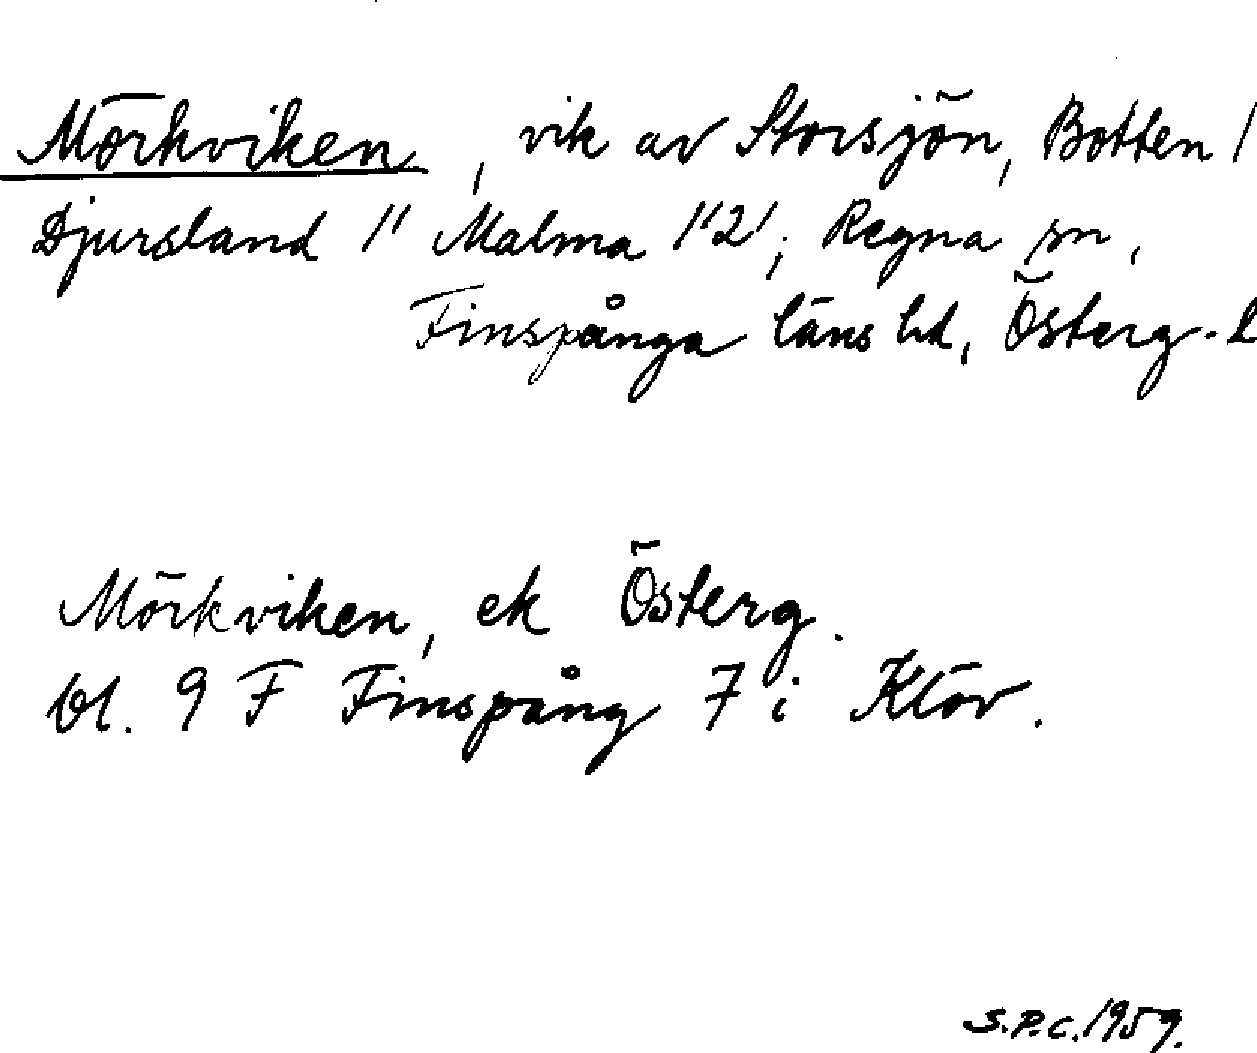 Mörkviken, vik av Storsjön, Botten 1
Djursland 1" Malma 1'2', Regna sn,
Finspånga läns hd, Österg. l
Mörkviken, ek Österg.
bl. 9 F Finspång 7 i Klöv.
S.P.C. 1959.